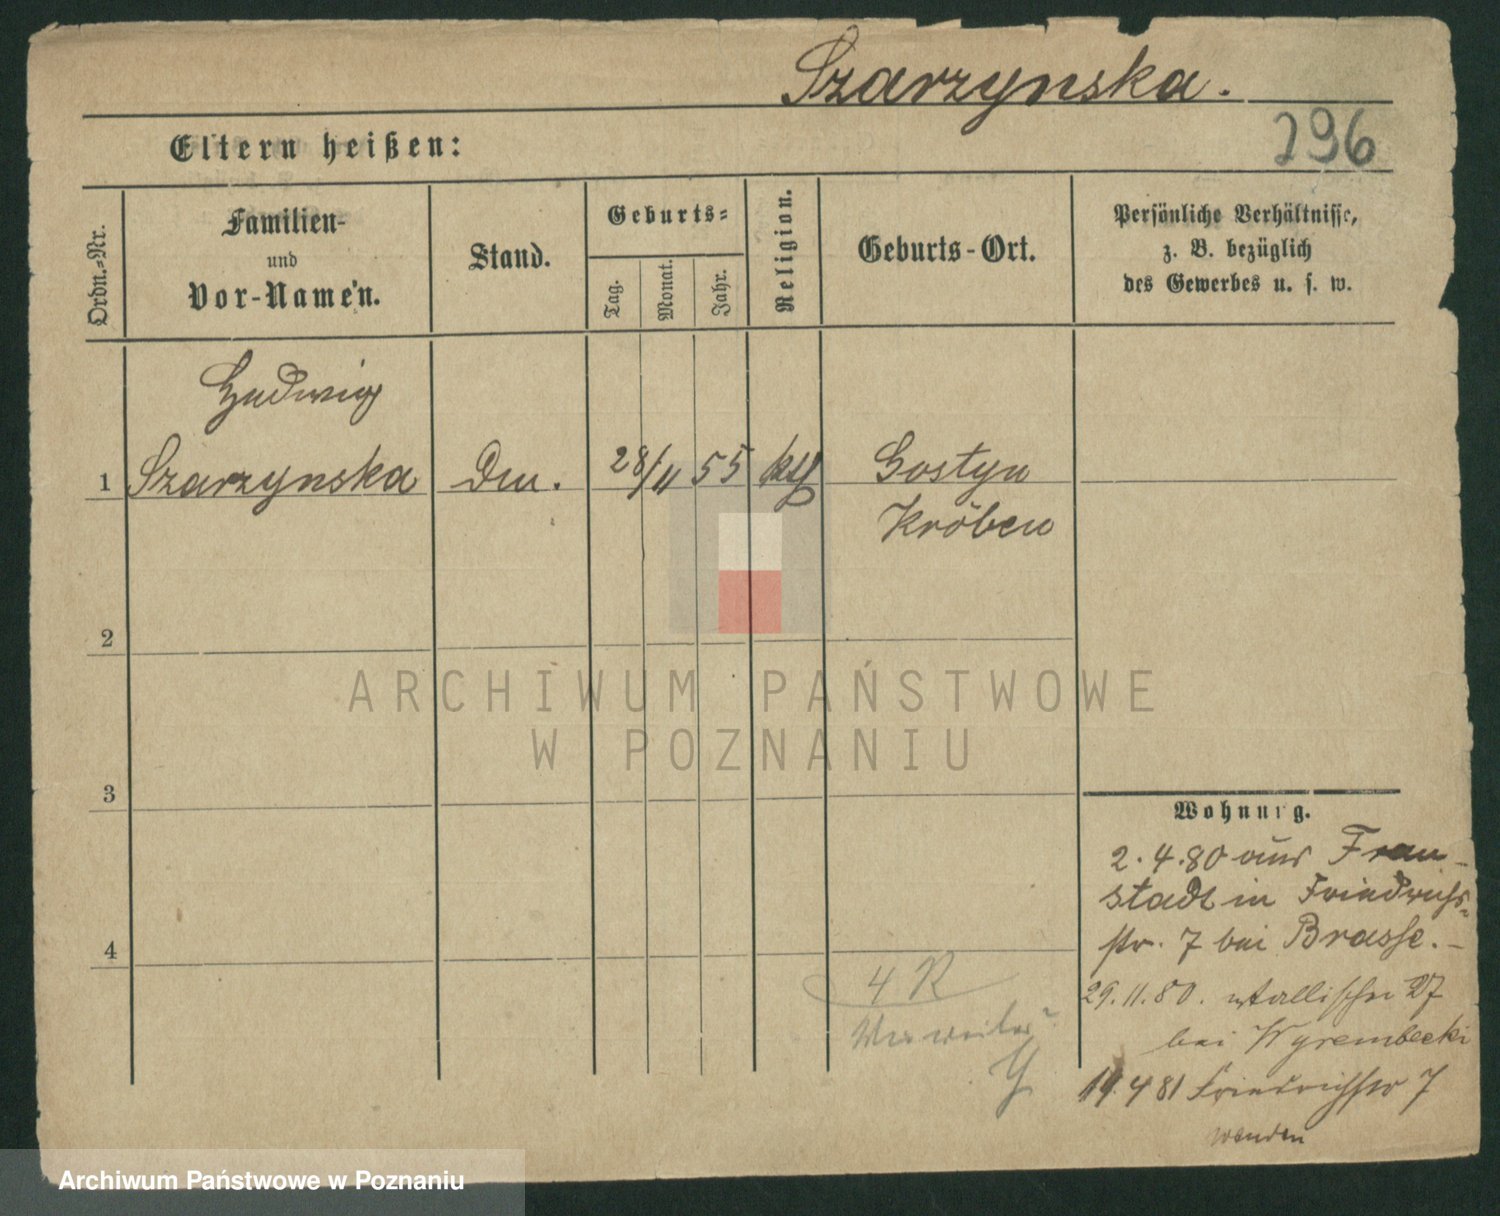 Szarzynska.
296
Eltern heißen:
Ordn.-Nr.
Familien-
und
Vor-Namen.
Stand.
Geburts-
Tag.
Monat.
Jahr.
Religion.
Geburts-Ort.
Persönliche Verhältnisse,
z. B. bezüglich
des Gewerbes u. s. w.
Hedwig
1 Szarzynska
28/11 55 kth
Gostyn
Kröben
2
3
4
ARCHIWUM PAŃSTWOWE
W POZNANIU
Wohnung.
2.4.80 aus Frau-
stadt in Friedrichs-
str. 7 bei Brasse.-
29.11.80. Wallischei 27
bei Wyrembecki
19.4 81 Friedrichstr 7
wenden
4 R
Archiwum Państwowe w Poznaniu